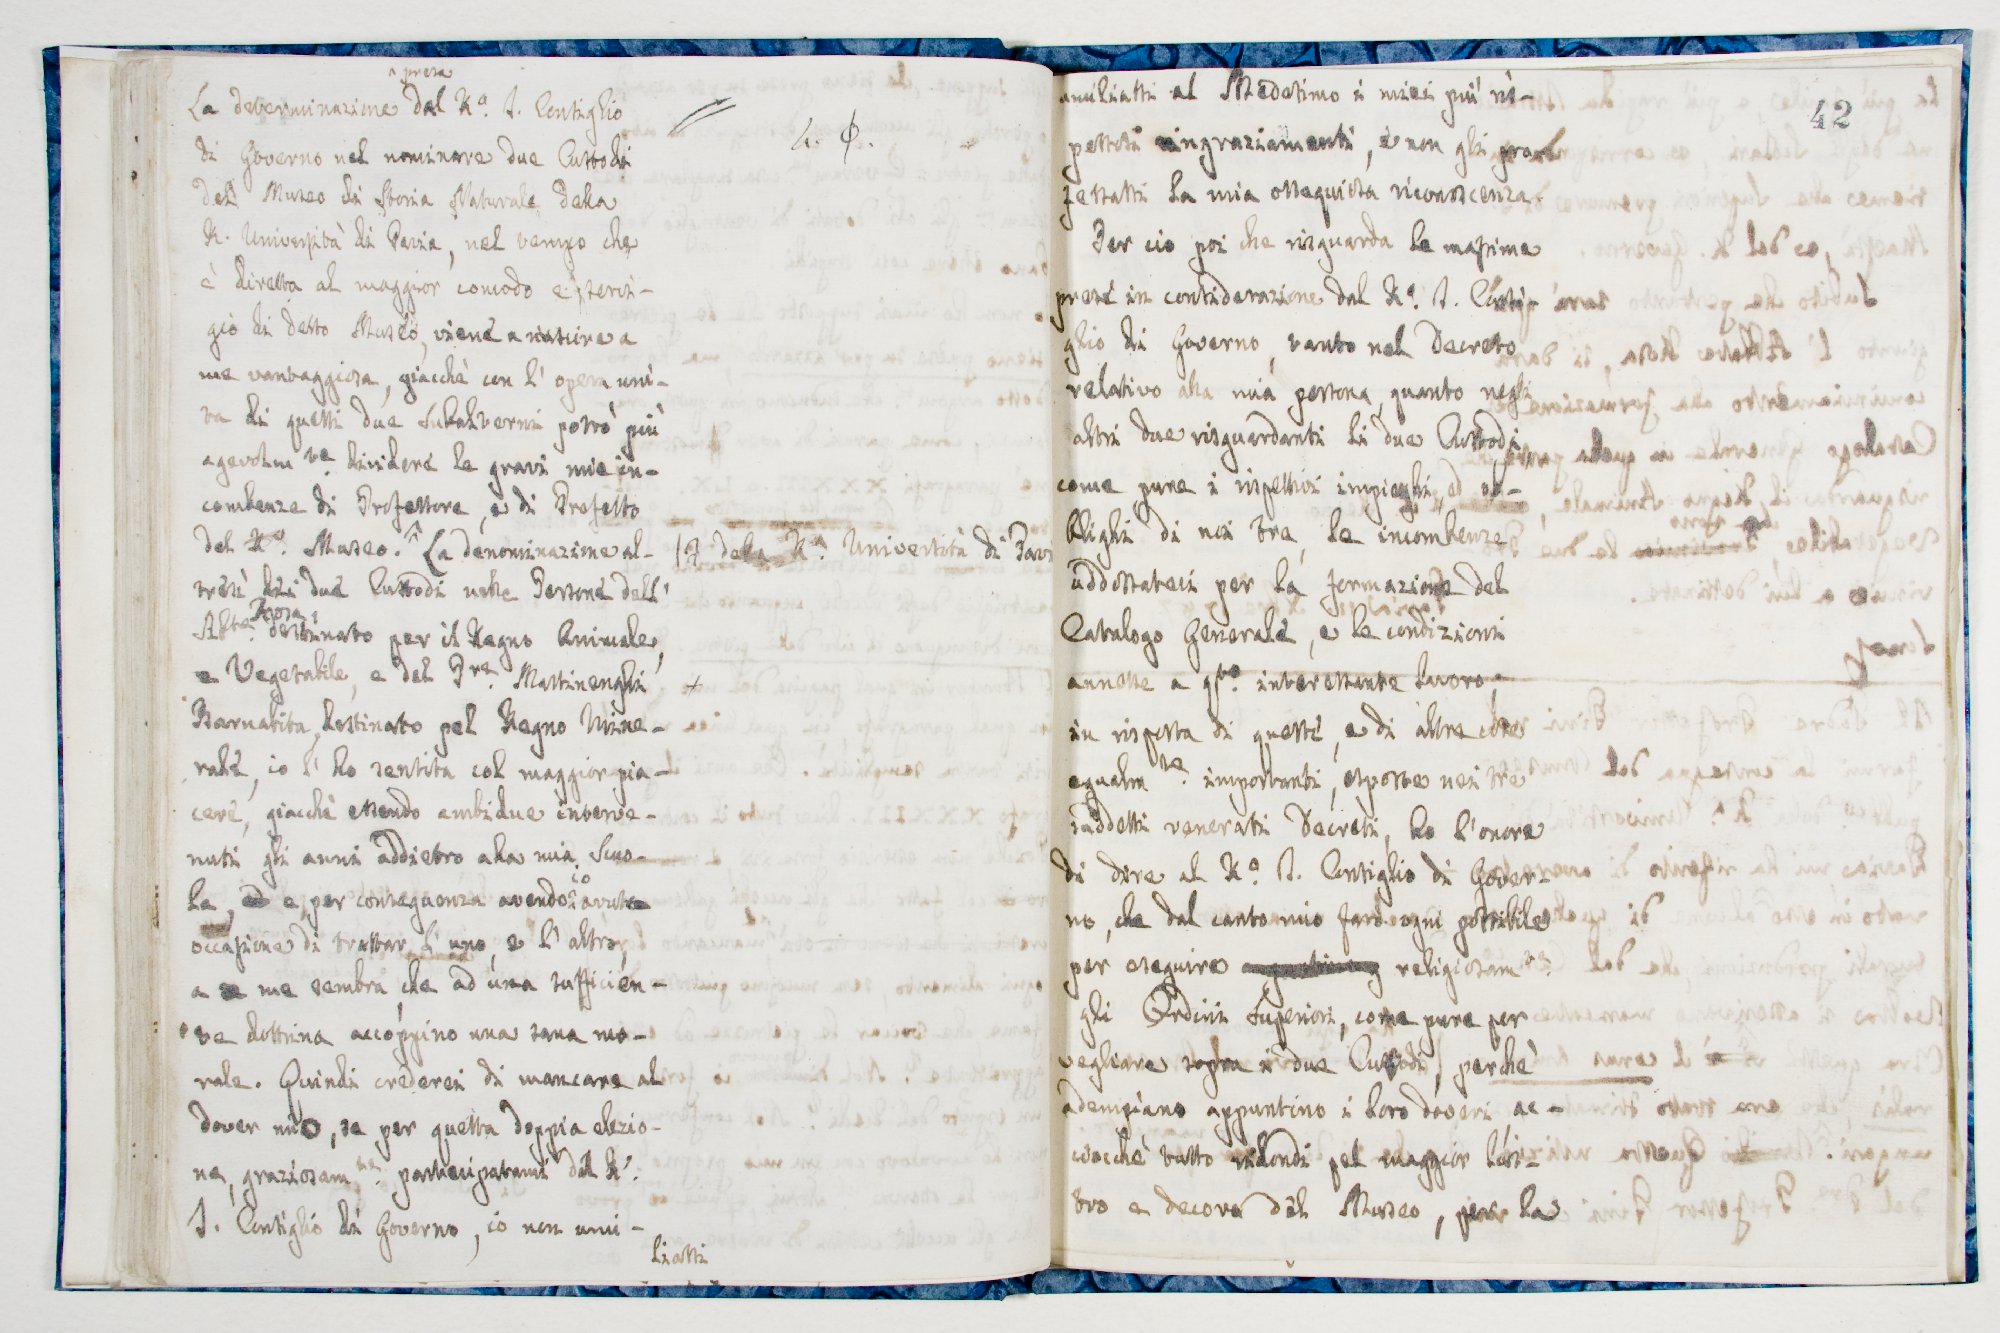 presa
La determinazione dal R.º I. Consiglio
di Governo nel nominare due Custodi
del Museo di Storia Naturale della
R. Università di Pavia, nel tempo che
è diretta al maggior comodo e servi-
gio di detto Museo, viene a riuscire a
me vantaggiosa, giacchè con l' opera uni-
ta di questi due Subalterni potrò più
agevolm.te dividere le gravi mie in-
combenze di Professore, e di Prefetto
del R.º Museo. La denominazione al-
tresì dei due Custodi nelle Persone dell'
Ab.te Rosa destinato per il Regno Animale,
e Vegetabile, e del P.re Martinenghi
Barnabita, destinato pel Regno Mine-
rale, io l' ho sentita col maggior pia-
cere, giacchè essendo ambidue interve-
nuti gli anni addietro alla mia Scuo-
la, e per conseguenza avendo io avuto
occasione di trattar l' uno, e l' altro,
a me sembra, che ad una sufficien-
te dottrina accoppino una sana mo-
rale. Quindi crederei di mancare al
dover mio, se per questa doppia elezio-
ne, graziosam.te partecipatami dal R.º
I. Consiglio di Governo, io non umi-
liassi
della R.ª Università di Pavi
+
42
umiliassi al Medesimo i miei più ris-
pettosi ringraziamenti, e non gli
testassi la mia ossequiosa riconoscenza.
Per ciò poi che risguarda le massime
prese in considerazione dal R.º I. Consi-
glio di Governo, tanto nel Decreto
relativo alla mia persona, quanto negli
altri due risguardanti li due Custodi,
come pure i rispettivi impieghi, ed ob-
blighi di noi tre, le incombenze
addossateci per la formazione del
Catalogo Generale, e le condizioni
annesse a q.sto interessante lavoro;
in risposta di queste, e di altre cose
egualm.te importanti, esposte nei tre
suddetti venerati Decreti, ho l'onore
di dire al R.º I. Consiglio di Gover-
no, che dal canto mio farò ogni possibile
per eseguire religiosam.te
gli Ordini Superiori, come pure per
vegliare sopra i due Custodi, perchè
adempiano appuntino i loro doveri, ac-
ciocchè tutto ridondi pel maggior lus-
tro e decoro del Museo, per la